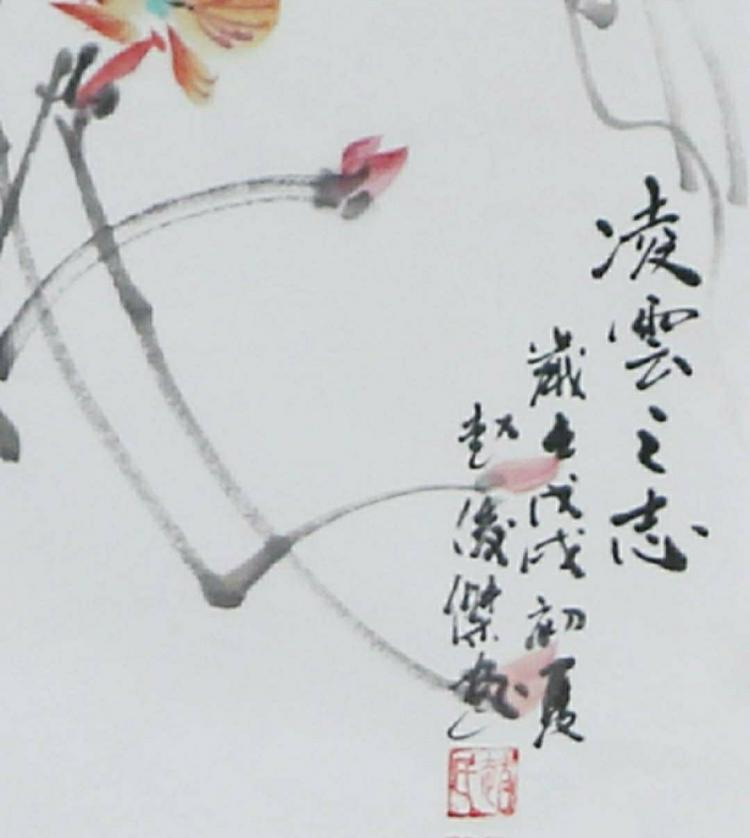 凌雲之志
歲在戊戌初夏
趙俊傑